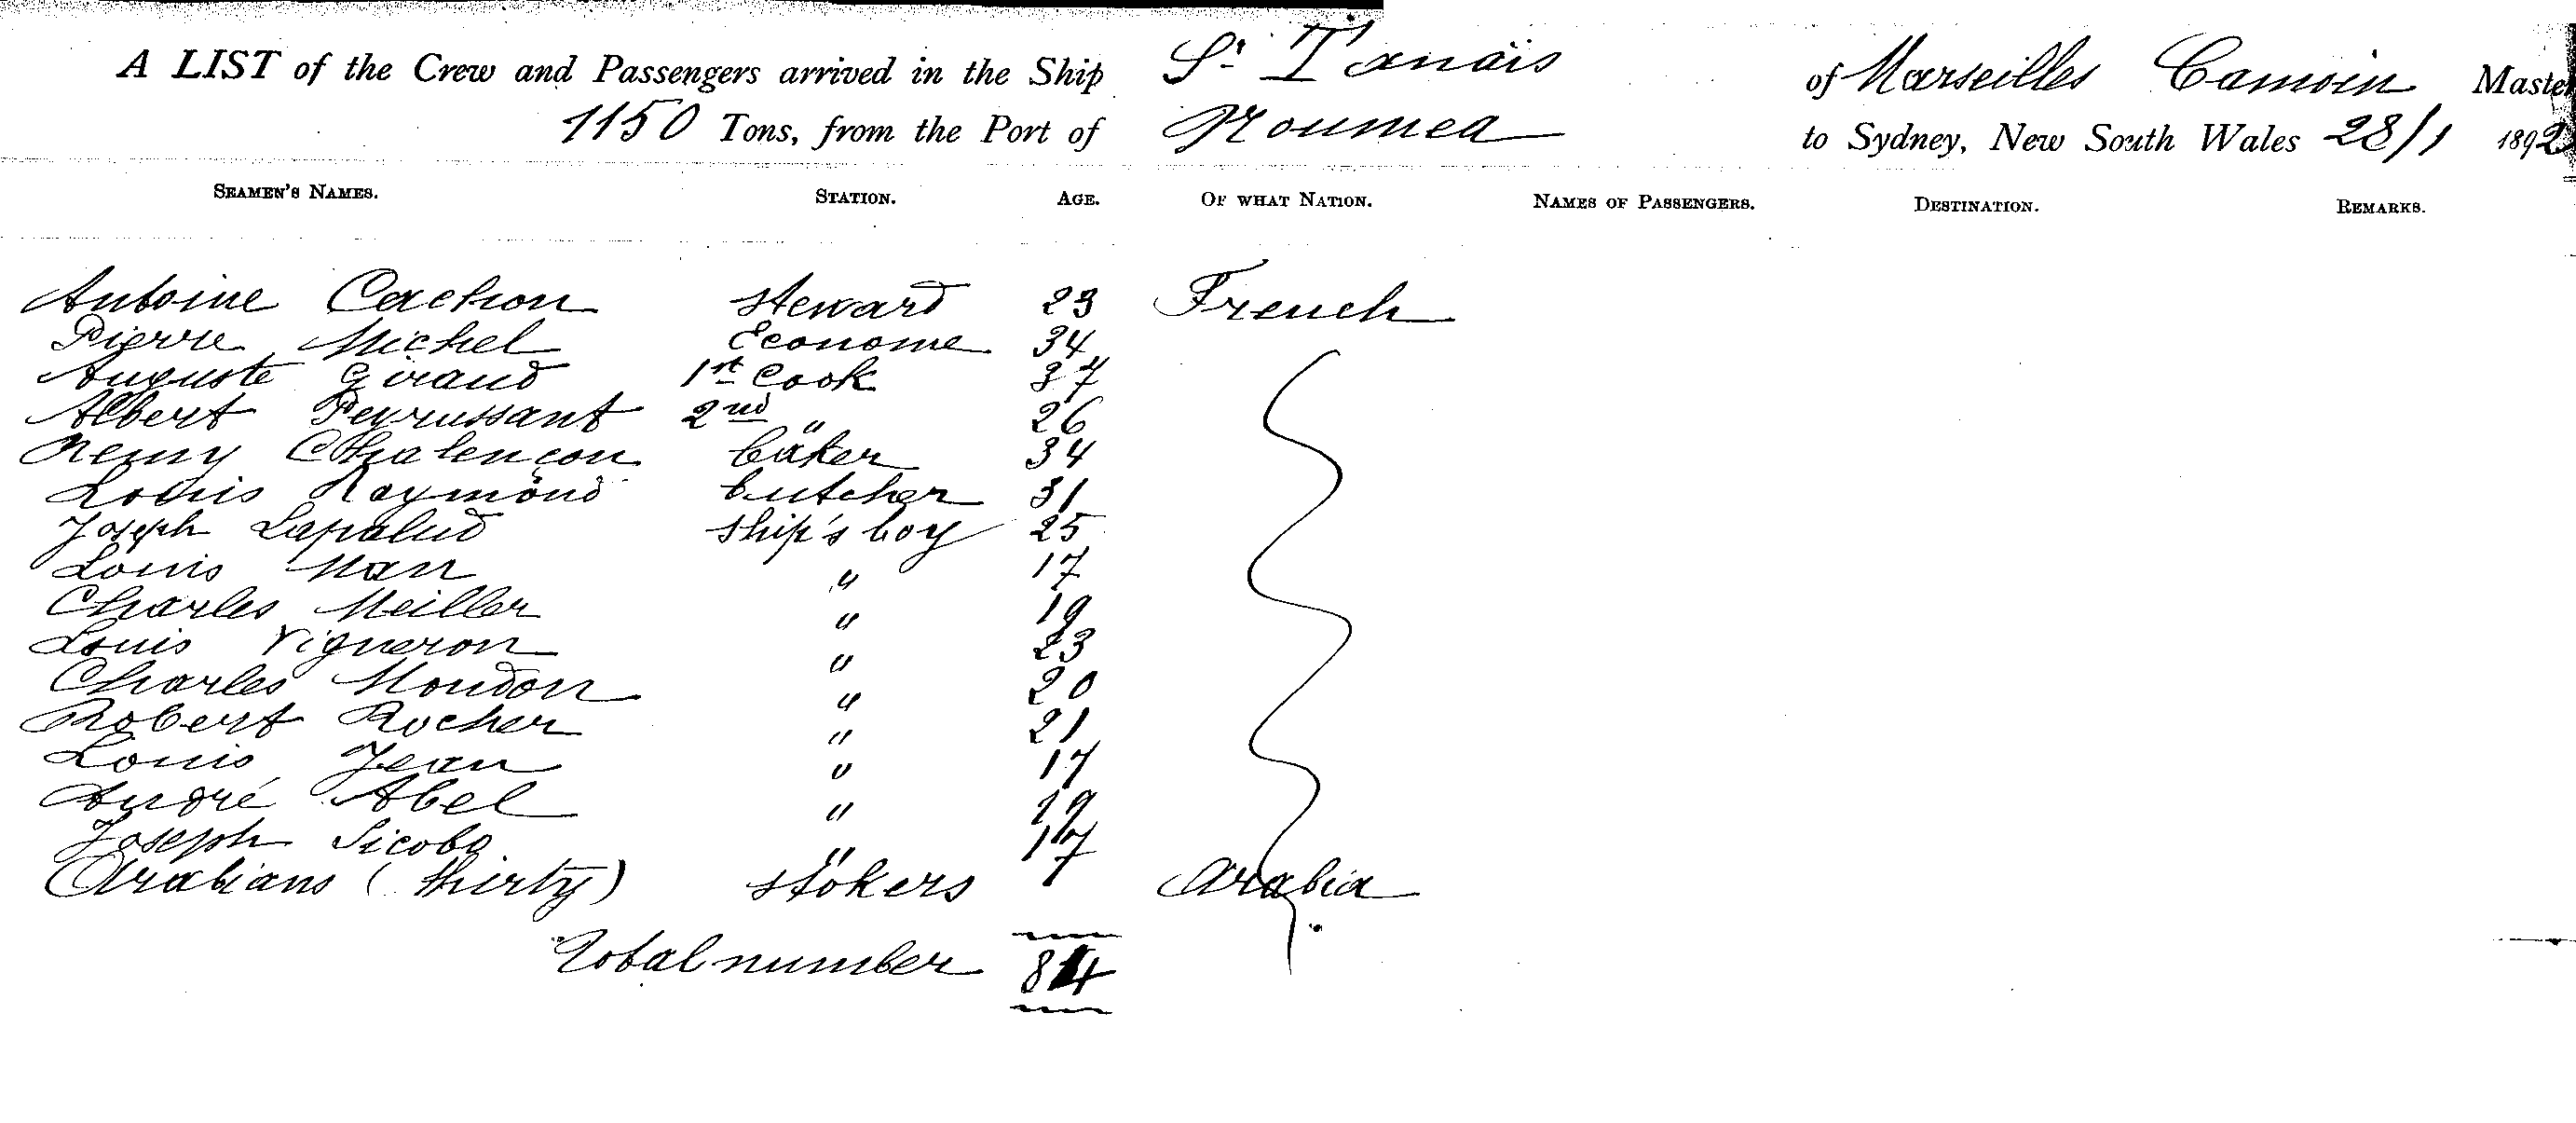 A LIST of the Crew and Passengers arrived in the Ship Sr Tanaïs of Marseilles Camoin Master
1150 Tons, from the Port of Noumea to Sydney, New South Wales 28/1 1892
SEAMEN'S NAMES. STATION. AGE. OF WHAT NATION. NAMES OF PASSENGERS. DESTINATION. REMARKS.
Antoine Cachion steward 23 French
Pierre Michel Econome 34
Auguste Giraud 1st Cook 37
Albert Peyrussant 2nd " 26
Remy Chalencon baker 34
Louis Raymond butcher 31
Joseph Lapalud ship's boy 25
Louis Man " 17
Charles Meiller " 19
Louis Vigneron " 23
Charles Moudon " 20
Robert Rocher " 21
Louis Jean " 17
André Abel " 19
Joseph Sicobo " 17
Arabians (thirty) stokers Arabia
Total number 84